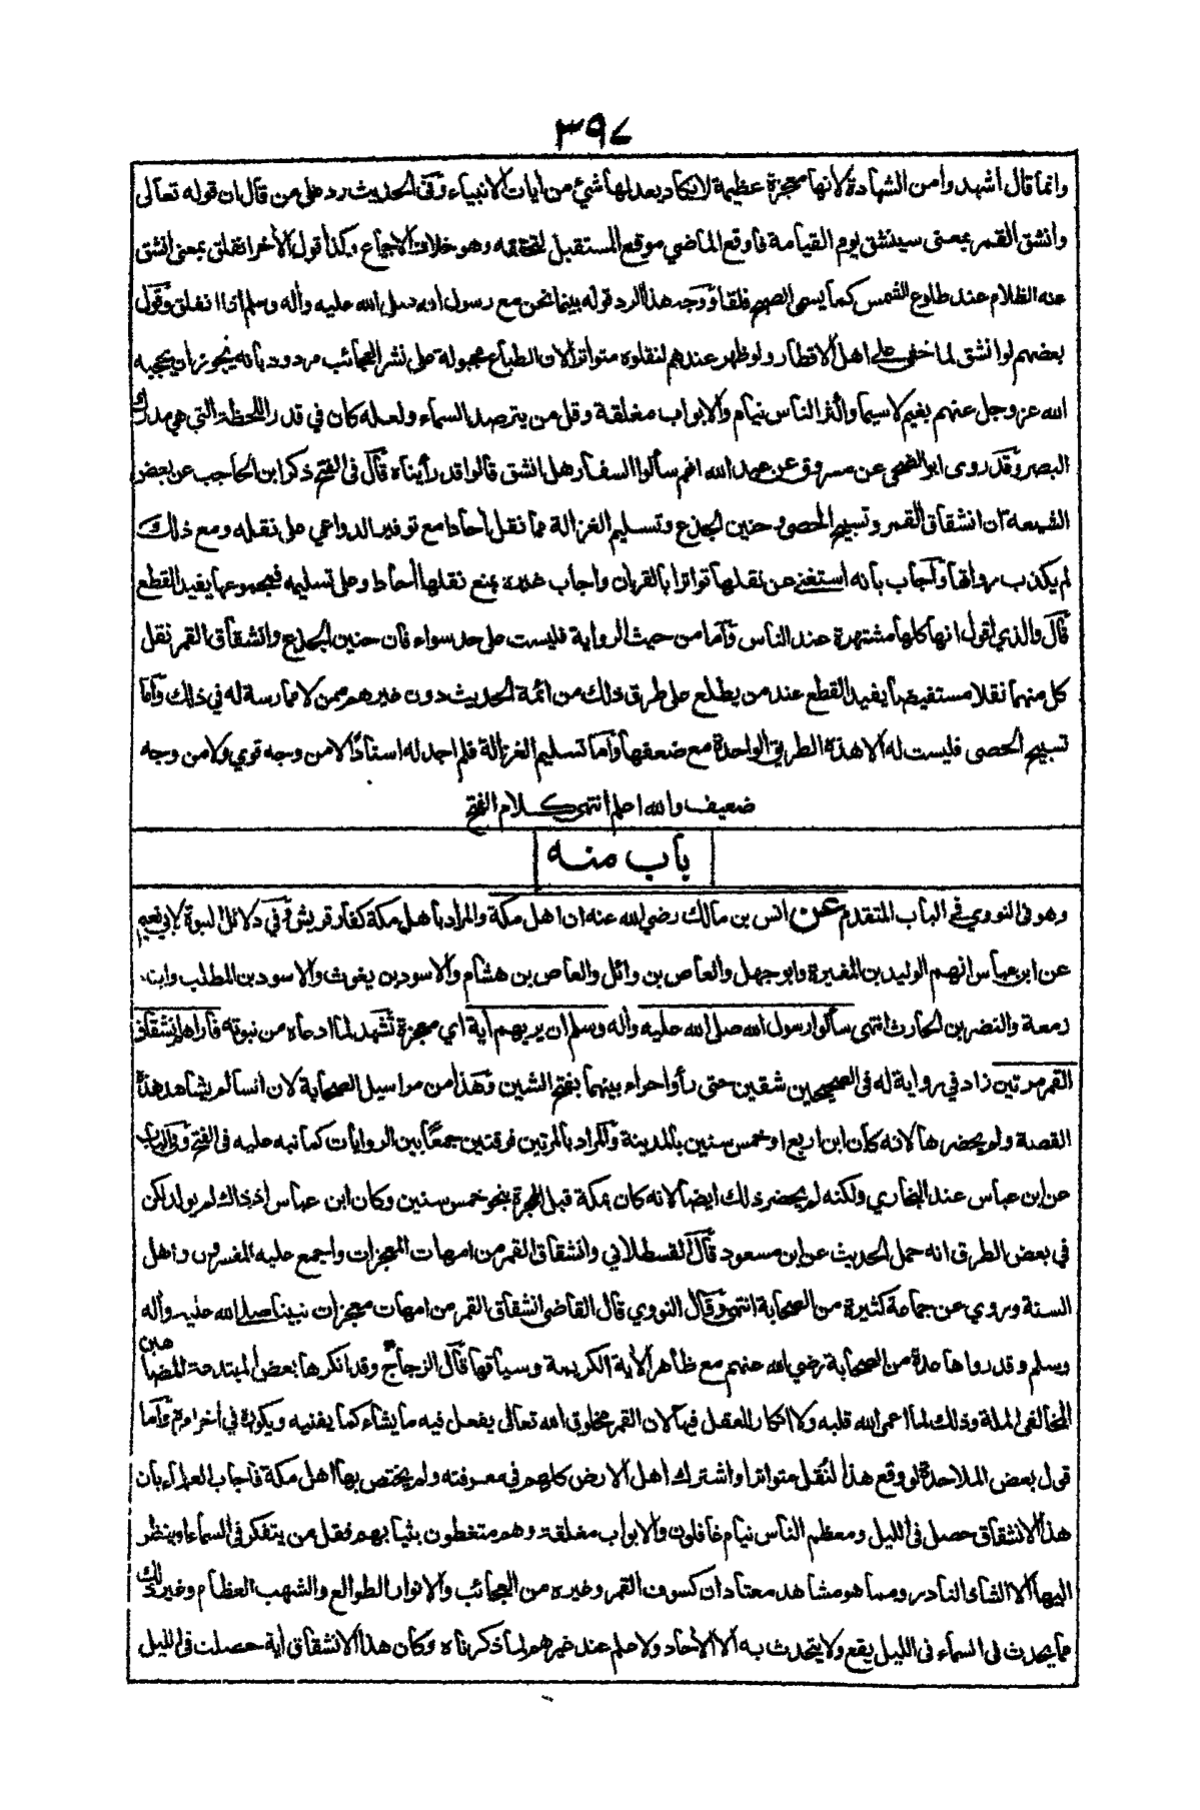 ٣٩٨
وانما قال اشهدوا من الشهادة لانها معجزة عظيمة لا يكاد يعدلها شئ من ايات الانبياء وفى الحديث رد على من قال ان قوله تعالى
وانشق القمر بمعنى سينشق يوم القيامة فاوقع الماضي موقع المستقبل لتحققه وهو خلاف الاجماع وكذا قول الأخر انفلق بمعنى انشق
عنه الظلام عند طلوع الشمس كما يسمى الصبح فلقا ووجه هذا الرد قوله بينما نحن مع رسول الله صلى الله عليه وأله وسلم اذا انفلق وقول
بعضهم لو انشق لما خفى على اهل الاقطار ولو ظهر عندهم لنقلوه متواترا لان الطباع مجبولة على نشر العجائب مردود بانه يجوز ان يحجبه
الله عز وجل عنهم بغيم لا سيما واكثر الناس نيام والابواب مغلقة وقل من يترصد السماء ولعله كان في قدر اللحظة التي هي مدرك
البصر وقد روى ابو الضحى عن مسروق عن عبد الله انهم سألوا السفار هل انشق قالوا قد رأيناه قال فى الفتح ذكر ابن الحاجب عن بعض
الشيعة ان انشقاق القمر وتسبيح الحصى وحنين الجذع وتسليم الغزالة مما نقل أحادا مع توفير الدواعي على نقله ومع ذلك
لم يكذب رواتها واجاب بانه استغنى عن نقلها تواترا بالقران واجاب غيره بمنع نقلها أحادا وعلى تسليمه فمجموعها يفيد القطع
قال والذي اقول انها كلها مشتهرة عند الناس واما من حيث الرواية فليست على حد سواء فان حنين الجذع وانشقاق القمر نقل
كل منهما نقلا مستفيضا يفيد القطع عند من يطلع على طرق ذلك من ائمة الحديث دون غيرهم ممن لا ممارسة له في ذلك واما
تسبيح الحصى فليست له الا هذه الطريق الواحدة مع ضعفها واما تسليم الغزالة فلم اجد له اسنادا لا من وجه قوي ولا من وجه
ضعيف والله اعلم انتهى كلام الفتح
باب منه
وهو فى النووي فى الباب المتقدم عن انس بن مالك رضي الله عنه ان اهل مكة والمراد باهل مكة كفار قريش وفي دلائل النبوة لابي نعيم
عن ابن عباس انهم الوليد بن المغيرة وابو جهل والعاص بن وائل والعاص بن هشام والاسود بن يغوث والاسود بن المطلب وابن
زمعة والنضر بن الحارث انتهى سألوا رسول الله صلى الله عليه وأله وسلم ان يريهم أية اي معجزة تشهد لما ادعاه من نبوته فاراهم انشقاق
القمر مرتين زاد في رواية له فى الصحيحين شقين حتى رأوا حراء بينهما بفتح الشين وهذا من مراسيل الصحابة لان انسا لم يشاهد هذه
القصة ولم يحضرها لانه كان ابن اربع او خمس سنين بالمدينة والمراد بالمرتين فرقتين جمعا بين الروايات كما نبه عليه فى الفتح وفى الباب
عن ابن عباس عند البخاري ولكنه لم يحضر ذلك ايضا لانه كان بمكة قبل الهجرة بنحو خمس سنين وكان ابن عباس اذ ذاك لم يولد لكن
في بعض الطرق انه حمل الحديث عن ابن مسعود قال القسطلاني وانشقاق القمر من امهات المعجزات واجمع عليه المفسرون واهل
السنة وروي عن جماعة كثيرة من الصحابة انتهى وقال النووي قال القاضى انشقاق القمر من امهات معجزات نبينا صلى الله عليه وأله
وسلم وقد رواها عدة من الصحابة رضي الله عنهم مع ظاهر الأية الكريمة وسياقها قال الزجاج وقد انكرها بعض المبتدعة المضاهين
المخالفى الملة وذلك لما اعمى الله قلبه ولا انكار للعقل فيها لان القمر مخلوق الله تعالى يفعل فيه ما يشاء كما يفنيه ويكوره في أخر امره واما
قول بعض الملاحدة لو وقع هذا لنقل متواترا واشترك اهل الارض كلهم في معرفته ولم يختص بها اهل مكة فاجاب العلماء بان
هذا الانشقاق حصل فى الليل ومعظم الناس نيام غافلون والابواب مغلقة وهم متغطون بثيابهم فقل من يتفكر فى السماء او ينظر
اليها الا الشاذ النادر ومما هو مشاهد معتاد ان كسوف القمر وغيره من العجائب والانوار الطوالع والشهب العظام وغير ذلك
مما يحدث فى السماء فى الليل يقع ولا يتحدث به الا الأحاد ولا علم عند غيرهم لما ذكرناه وكان هذا الانشقاق أية حصلت فى الليل